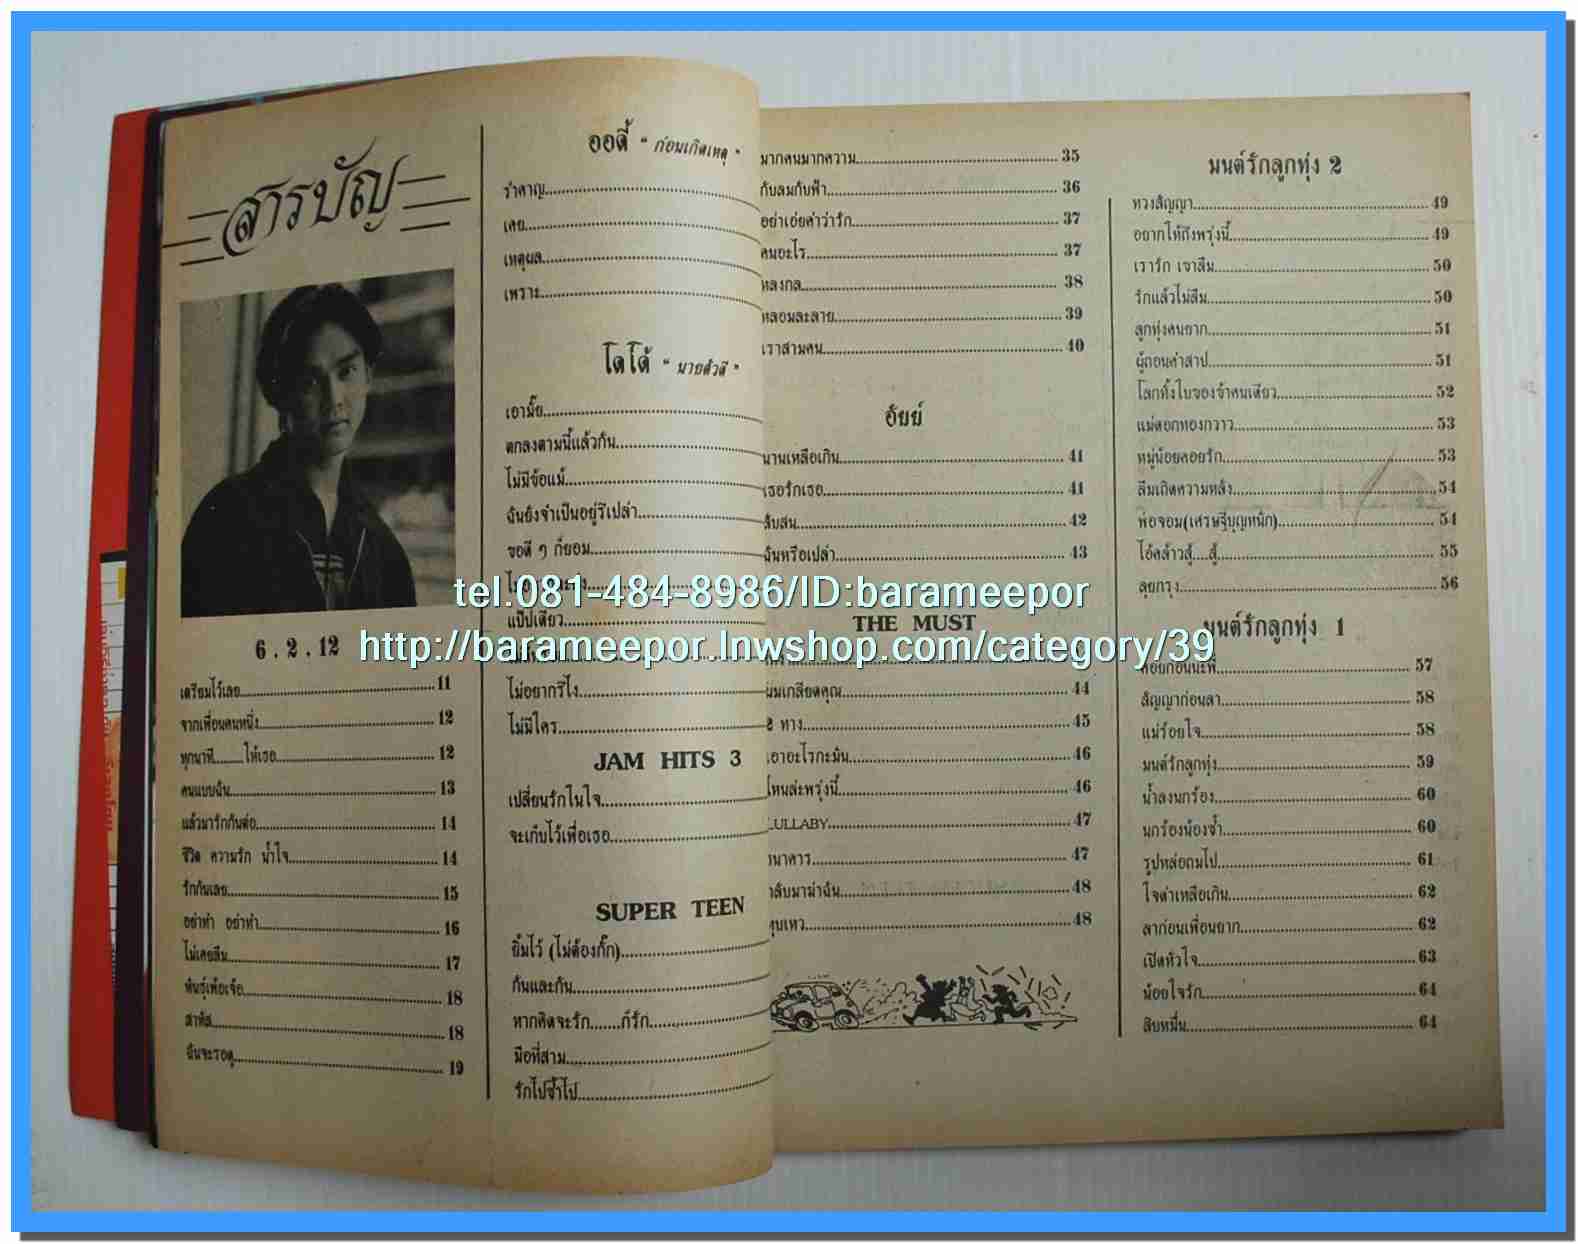 สารบัญ
6.2.12
เตรียมไว้เลย 11
จากเพื่อนคนหนึ่ง 12
ทุกนาที......ให้เธอ 12
คนแบบฉัน 13
แล้วมารักกันต่อ 14
ชีวิต ความรัก น้ำใจ 14
รักกันเลย 15
อย่าทำ อย่าทำ 16
ไม่เคยลืม 17
พันธุ์เพ้อเจ้อ 18
สาหัส 18
ฉันจะรอดู 19
ออดี้ " ก่อนเกิดเหตุ "
รำคาญ
เคย
เหตุผล
เพราะ
โดโด้ " นายตัวดี "
เอามั้ย
ตกลงตามนี้แล้วกัน
ไม่มีข้อแม้
ฉันยังจำเป็นอยู่รึเปล่า
ขอดี ๆ ก็ยอม
แป๊ปเดียว
ไม่อยากรีไง
ไม่มีใคร
JAM HITS 3
เปลี่ยนรักในใจ
จะเก็บไว้เพื่อเธอ
SUPER TEEN
ยิ้มไว้ (ไม่ต้องกั๊ก)
กันและกัน
หากคิดจะรัก......ก็รัก
มือที่สาม
รักไปช้ำไป
มากคนมากความ 35
กับลมกับฟ้า 36
อย่าเอ่ยคำว่ารัก 37
คนอะไร 37
หลงกล 38
หลอมละลาย 39
เราสามคน 40
อัยย์
นานเหลือเกิน 41
เธอรักเธอ 41
สับสน 42
ฉันหรือเปล่า 43
THE MUST
ผมเกลียดคุณ 44
2 ทาง 45
เอาอะไรกะมัน 46
ไหนล่ะพรุ่งนี้ 46
LULLABY 47
ธนาคาร 47
กลับมาฆ่าฉัน 48
ทุบเหว 48
มนต์รักลูกทุ่ง 2
ทวงสัญญา 49
อยากให้ถึงพรุ่งนี้ 49
เรารัก เจาลืม 50
รักแล้วไม่ลืม 50
ลูกทุ่งคนยาก 51
ผู้ถอนคำสาป 51
โลกทั้งใบของข้าคนเดียว 52
แม่ดอกทองกวาว 53
หมู่น้อยคอยรัก 53
ลืมเถิดความหลัง 54
พ่อจอม(เศรษฐีบุญหนัก) 54
ไอ้คล้าวสู้....สู้ 55
ลุยกรุง 56
มนต์รักลูกทุ่ง 1
คอยก่อนนะพี่ 57
สัญญาก่อนลา 58
แม่ร้อยใจ 58
มนต์รักลูกทุ่ง 59
น้ำลงนกร้อง 60
นกร้องน้องช้ำ 60
รูปหล่อถมไป 61
ใจดำเหลือเกิน 62
ลาก่อนเพื่อนยาก 62
เปิดหัวใจ 63
น้อยใจรัก 64
สิบหมื่น 64
tel.081-484-8986/ID:barameepor
http://barameepor.lnwshop.com/category/39